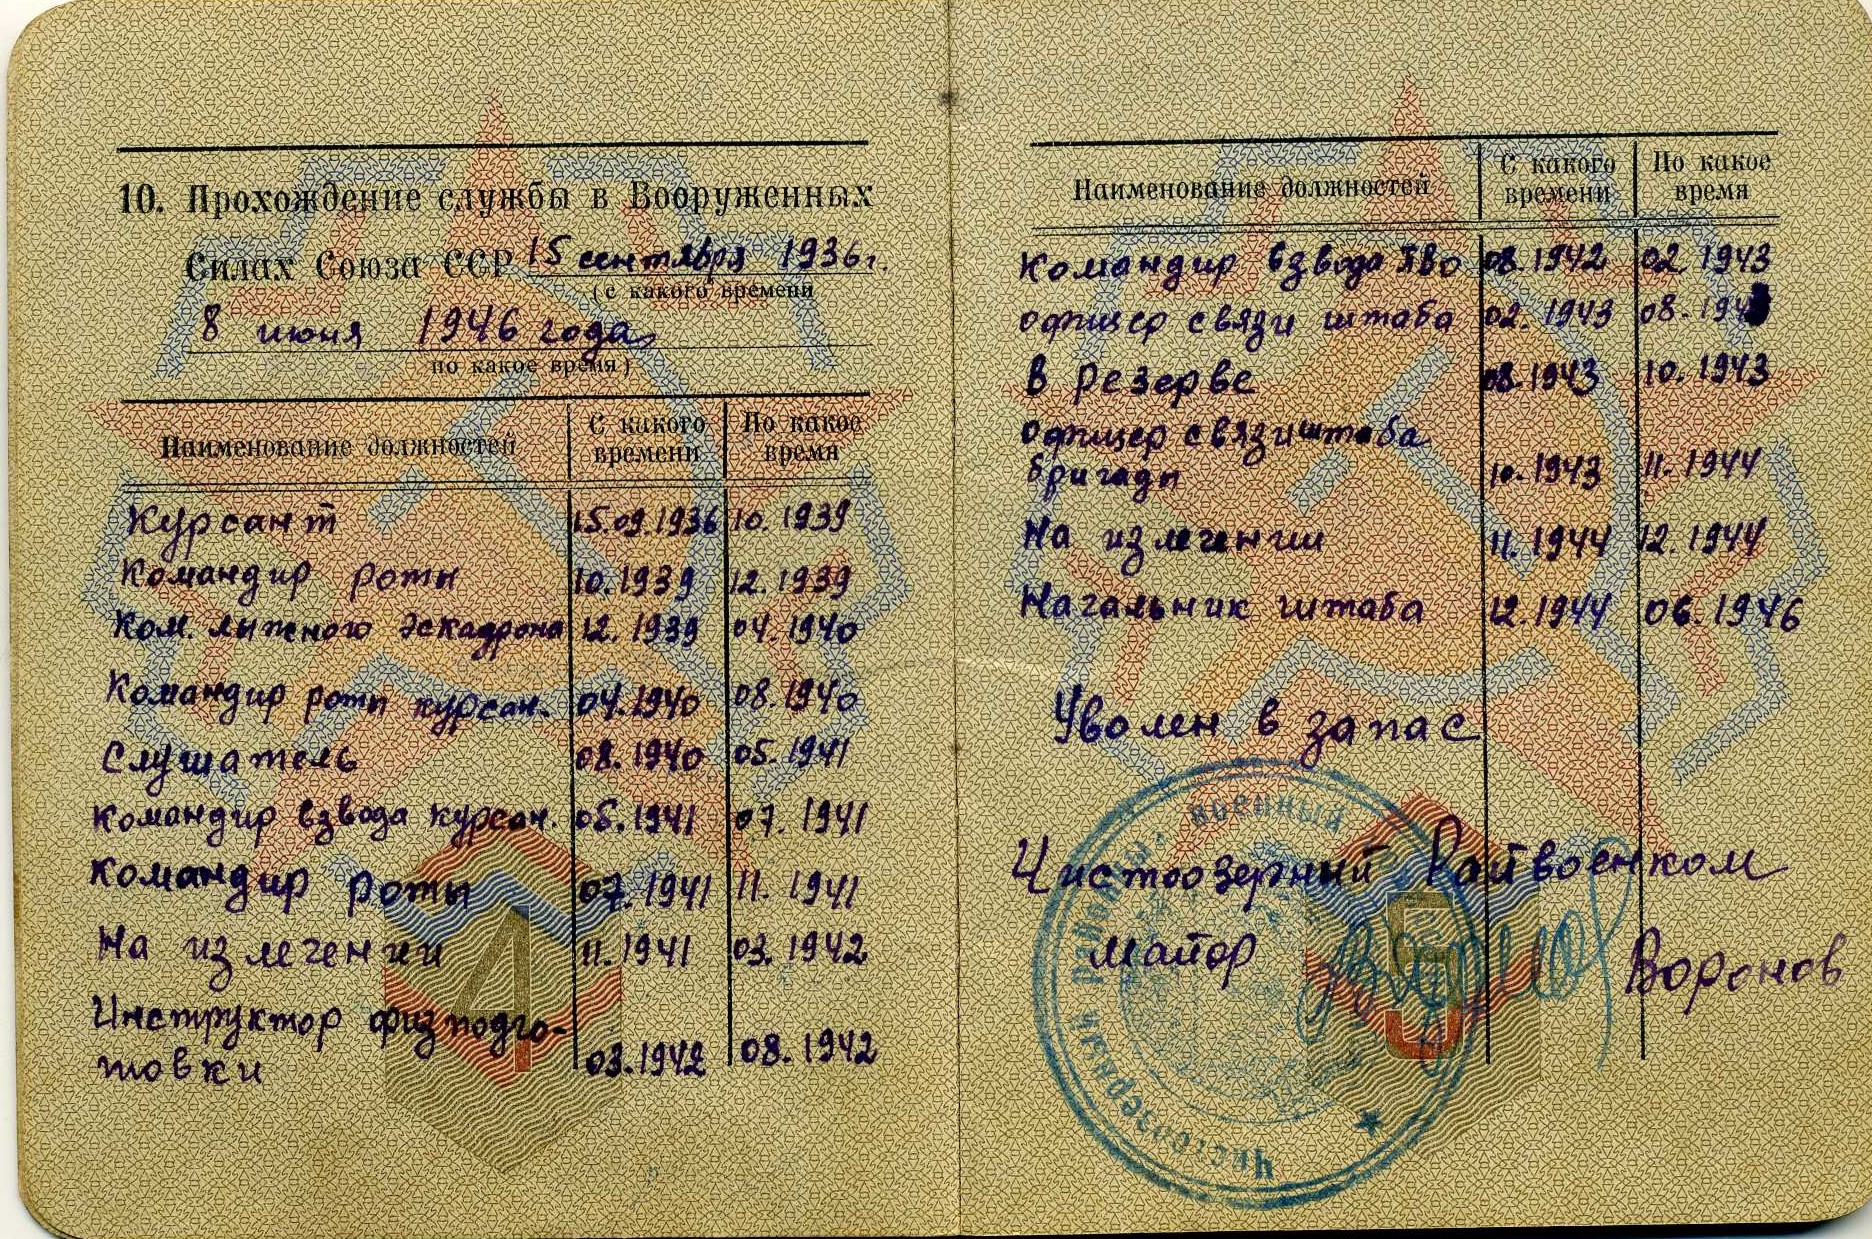 10. Прохождение службы в Вооруженных
Силах Союза ССР 15 сентября 1936г.
(с какого времени
8 июня 1946 года
по какое время)
Наименование должностей С какого времени По какое время
Курсант 15.09.1936 10.1939
Командир роты 10.1939 12.1939
Ком. лыжного эскадрона 12.1939 04.1940
Командир роты курсан. 04.1940 08.1940
Слушатель 08.1940 05.1941
Командир взвода курсан. 05.1941 07.1941
Командир роты 07.1941 11.1941
На излечении 11.1941 03.1942
Инструктор физподго-
товки 03.1942 08.1942
4
Наименование должностей С какого времени По какое время
Командир взвода ПВО 08.1942 02.1943
офицер связи штаба 02.1943 08.1943
В резерве 08.1943 10.1943
Офицер связи штаба
бригады 10.1943 11.1944
На излечении 11.1944 12.1944
Начальник штаба 12.1944 06.1946
Уволен в запас
Чистоозерный Райвоенком
майор Воронов
5
Чистоозерный районный военный